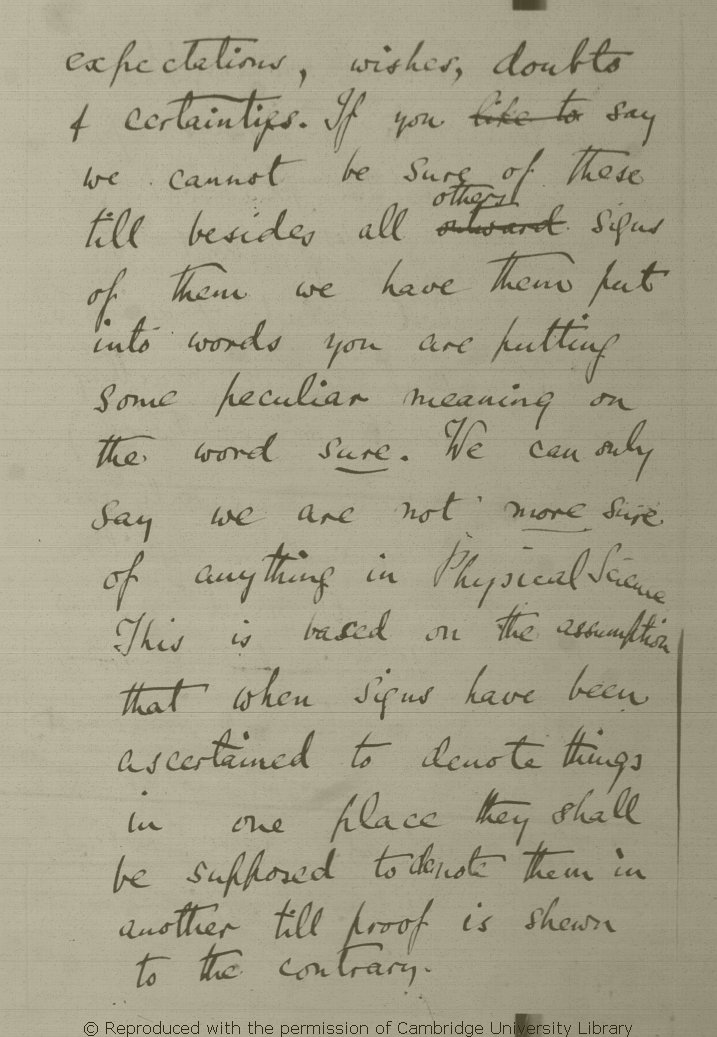 expectations, wishes, doubts
& certainties. If you like to say
we cannot be sure of these
others
till besides all outward signs
of them we have them put
into words you are putting
some peculiar meaning on
the word sure. We can only
say we are not more sure
of anything in Physical Science
This is based on the assumption
that when signs have been
ascertained to denote things
in one place they shall
be supposed to denote them in
another till proof is shewn
to the contrary.
© Reproduced with the permission of Cambridge University Library